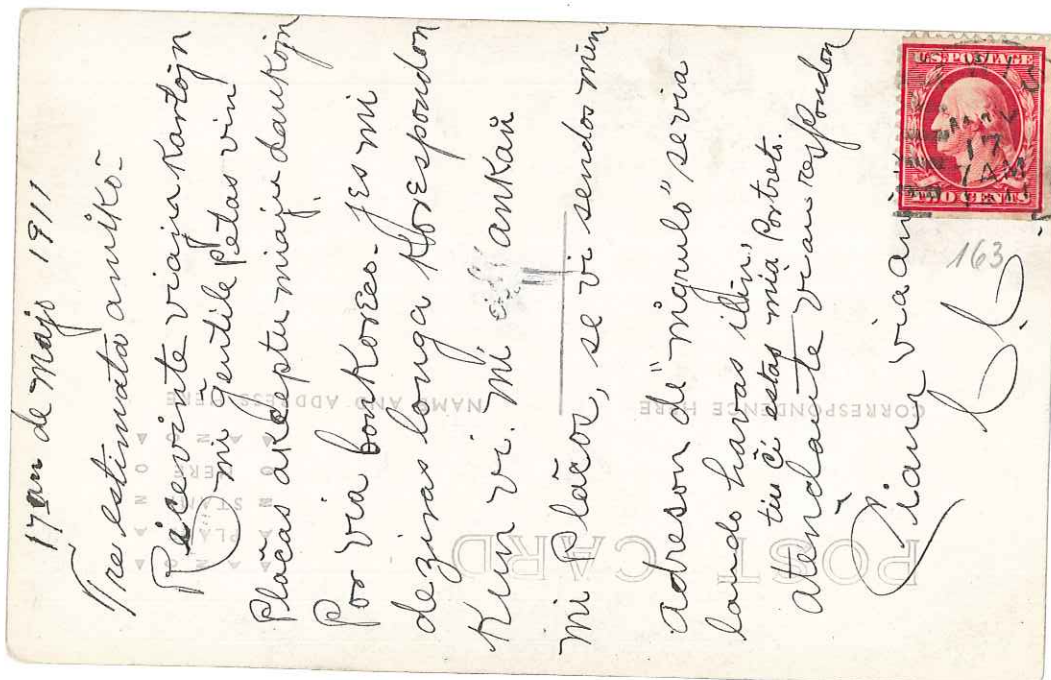 17an de Majo 1911
Tre estimata amiko-
Ricevinte viajn Kartojn
mi ĝentile petas vin
Plaĉas akceptu miajn dankojn
Por via bonkoreco. Jes mi
deziras longa Korespondon
Kun vi. mi, ankaŭ
mi Plaĉos, se vi sendos min
adreson de "nigrulo" se via
lando havas ilin,
tiu ĉi estas mia Portreto.
atendante vian respondon
Sian via
POST CARD
CORRESPONDENCE HERE
NAME AND ADDRESS HERE
PLACE
STAMP
HERE
U.S. POSTAGE
TWO CENTS
MAY
17
7 AM
163